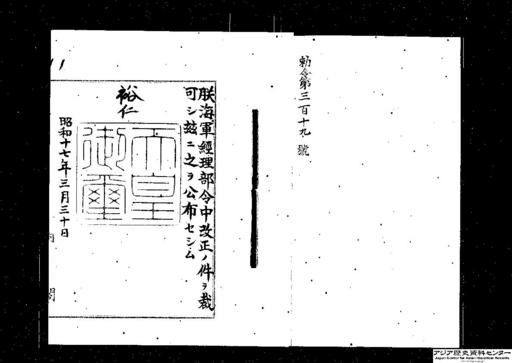 勅令第三百十九號
朕海軍經理部令中改正ノ件ヲ裁
可シ茲ニ之ヲ公布セシム
裕仁
天皇
御璽
昭和十七年三月三十日
内閣
アジア歴史資料センター
Japan Center for Asian Historical Records